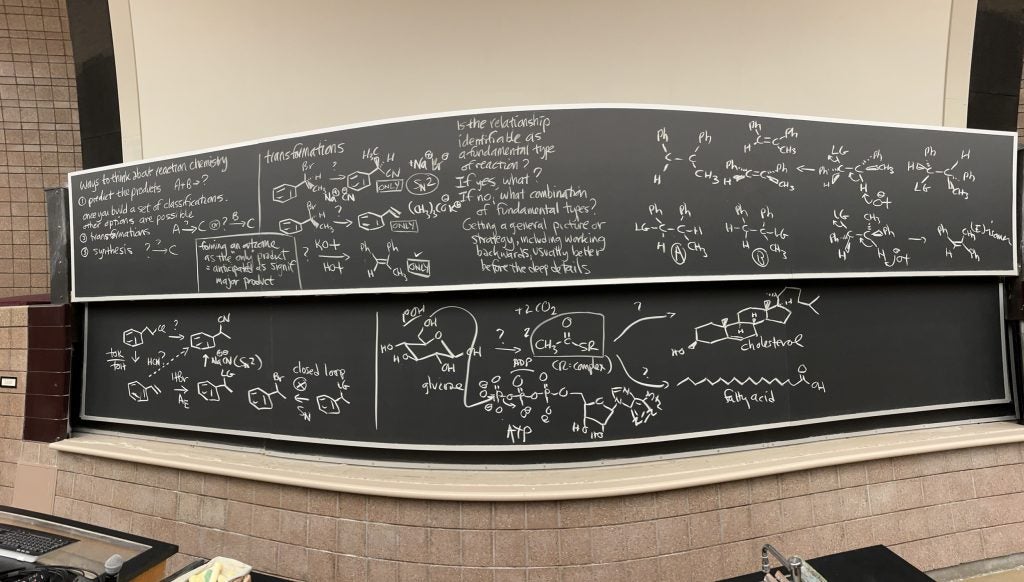 Ways to think about reaction chemistry
① predict the products A+B→?
once you build a set of classifications.
other options are possible
② transformations A ?→ C or B ?→ C
③ synthesis ? ?→ C
forming an outcome
as the only product
= anticipated as signif
major product
transformations
Br
H
CH₃
?
Na⊕ ⊖CN
H₃C H
CN
ONLY
SN2
Br
H
CH₃
?
ONLY
(CH₃)₃CO⊖K⊕
?
KOt
HOt
Ph
Ph
CH₃
ONLY
Is the relationship
identifiable as
a fundamental type
of reaction?
If yes, what?
If no, what combination
of fundamental types?
Getting a general picture or
strategy, including working
backwards, usually better
before the deep details
Ph Ph
C–C
H CH₃
Ph
LG
H
CH₃
Ph Ph
LG–C–C–H
H CH₃
Ⓐ
Ph Ph
H–C–C–LG
H CH₃
Ⓑ
LG
Ph
H
CH₃
Ph
(E)-isomer
?
CN
HCN?
↑NaCN (SN2)
HBr
AE
LG
Br
closed loop
SN
LG
HO
OH
OH
glucose
?
ADP
+2CO₂
2
O
CH₃ C SR
(R=complex)
?
cholesterol
HO
?
O
OH
fatty acid
ATP